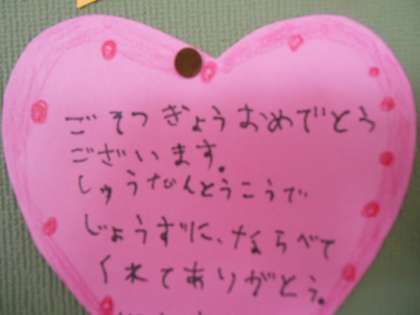 ごそつぎょうおめでとう
ございます。
しゅうだんとうこうで
じょうずに、ならべて
くれてありがとう。